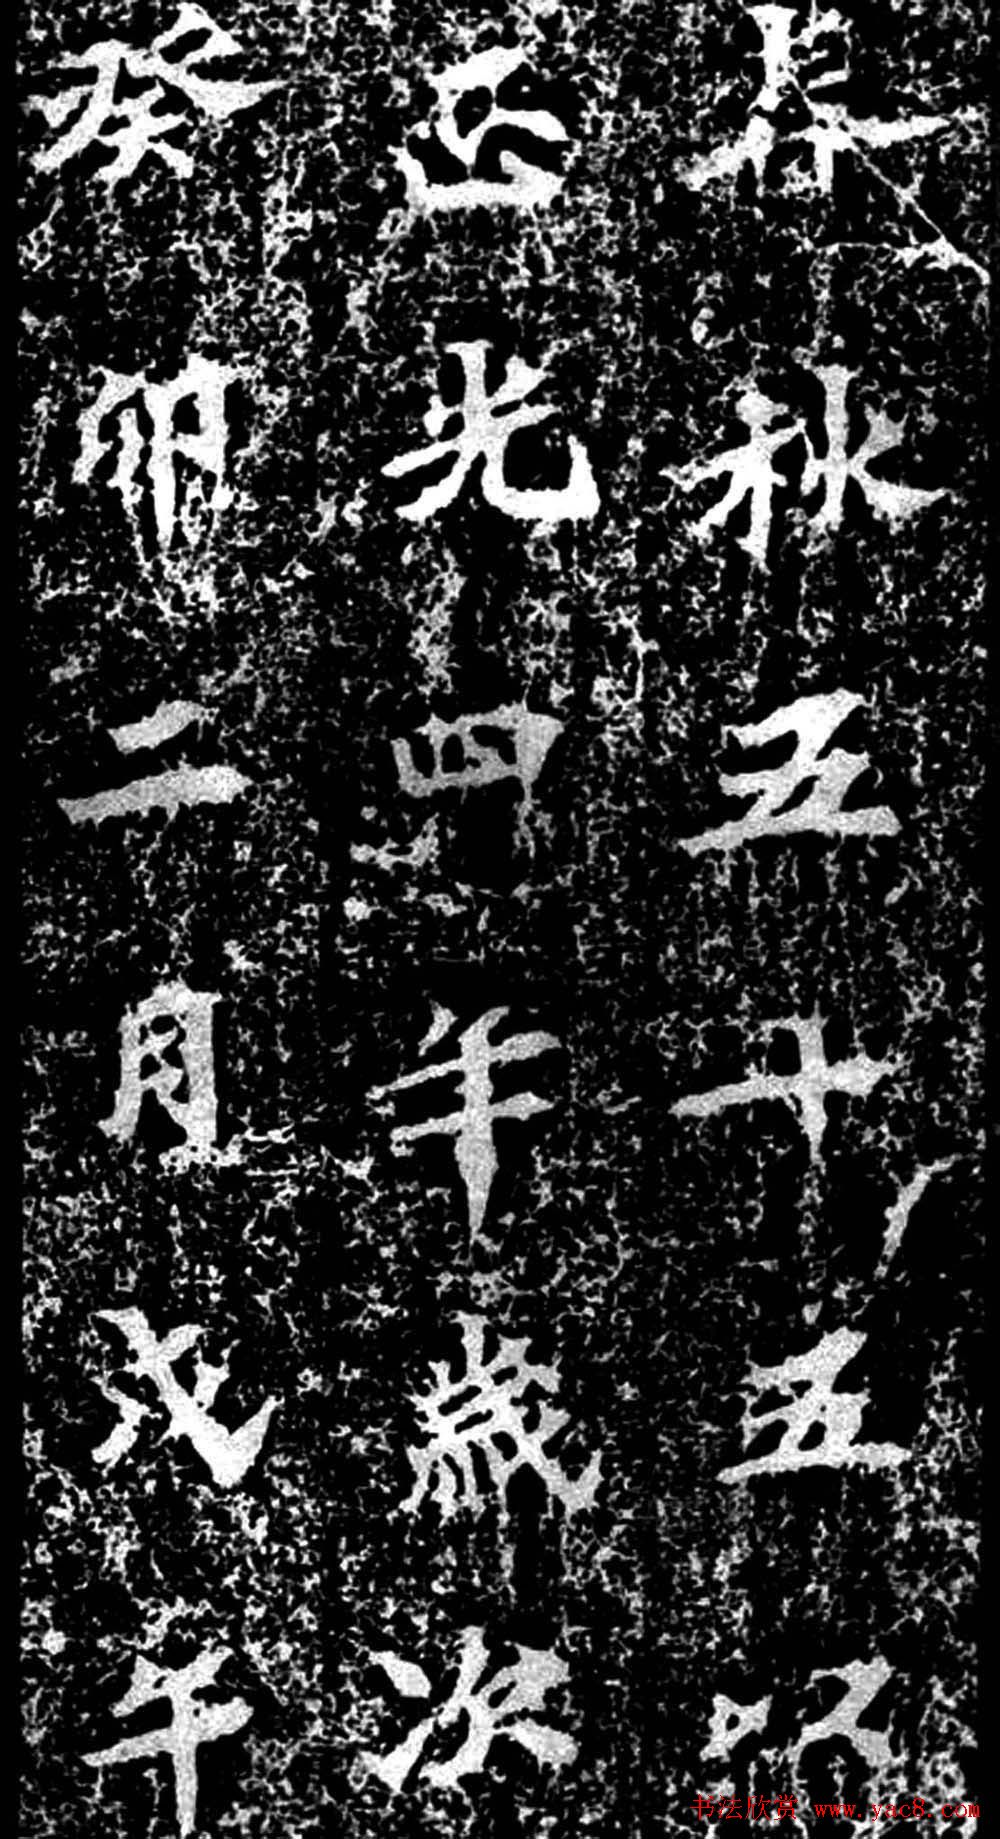 春秋五十五以
正光四年歲次
癸卯二月戊午
书法欣赏 www.yac8.com